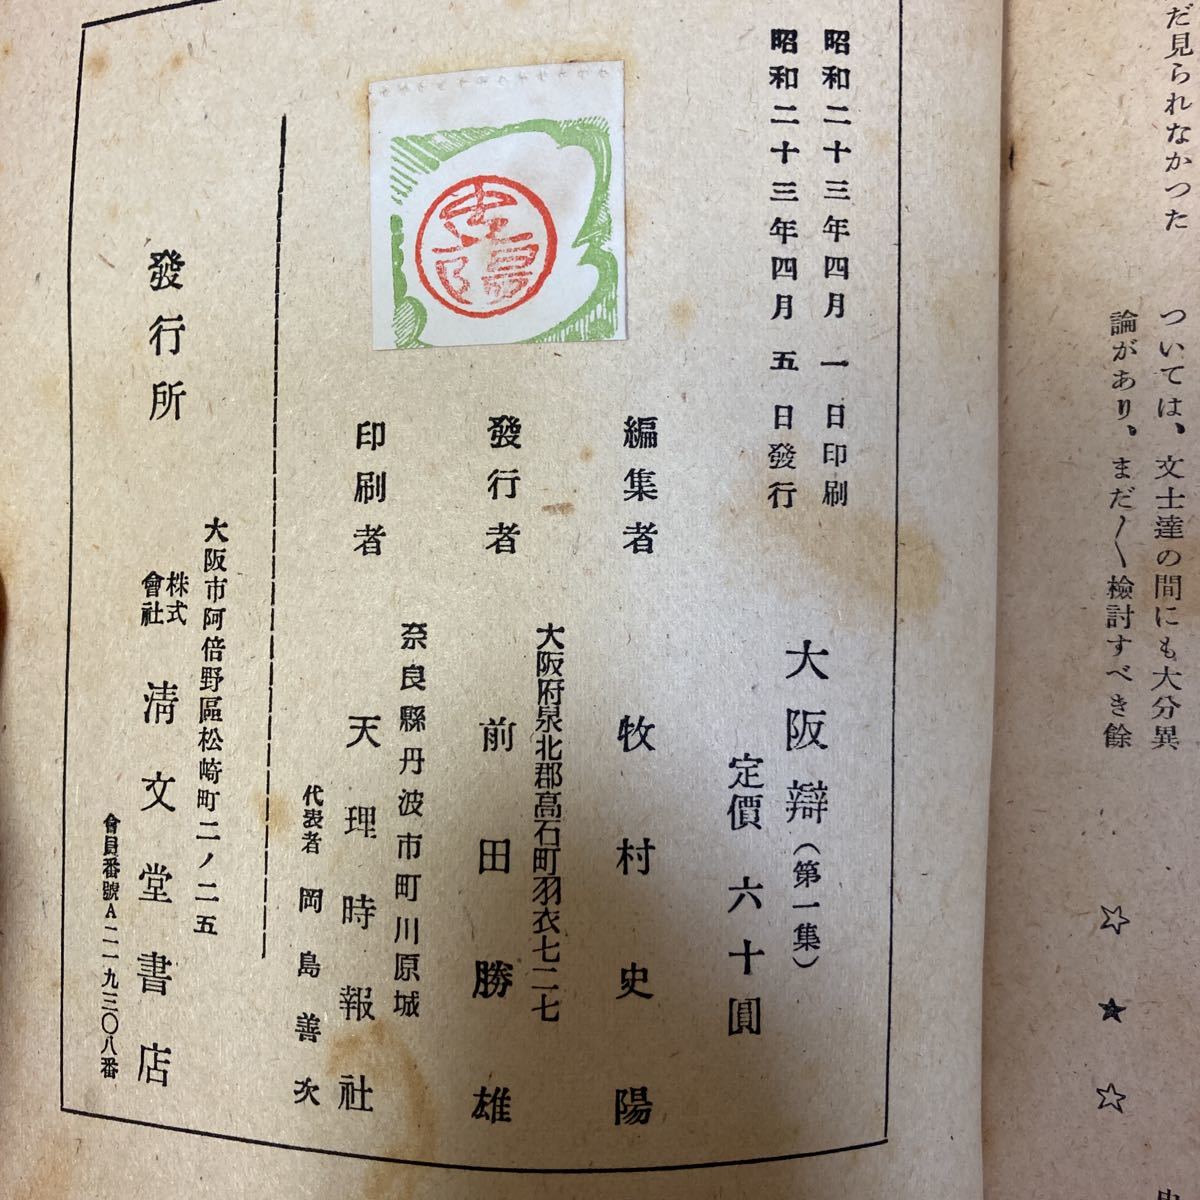 だ見られなかつた
ついては、文士達の間にも大分異
論があり、まだ〳〵檢討すべき餘
☆
★
☆
昭和二十三年四月一日印刷
昭和二十三年四月五日發行
大阪辯（第一集）
定價六十圓
編集者 牧村史陽
大阪府泉北郡高石町羽衣七二七
發行者 前田勝雄
奈良縣丹波市町川原城
印刷者 天理時報社
代表者 岡島善次
史陽
大阪市阿倍野區松崎町二ノ二五
發行所 株式會社 淸文堂書店
會員番號A二一九三〇八番